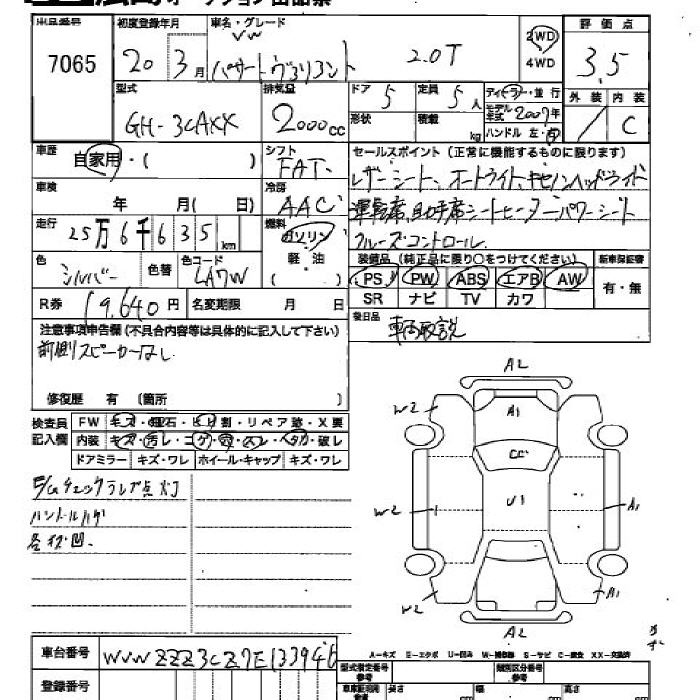 広島オークション出品票
出品番号 7065
初度登録年月 20年3月
車名・グレード VW パサートヴァリアント 2.0T
2WD
4WD
評価点 3.5
型式 GH-3CAXX
排気量 2000cc
ドア 5 定員 5人
形状 積載 kg
ディーラー・並行
モデル年式 2007年
ハンドル 左・右
外装 内装 C
車歴 自家用・( )
シフト FAT
セールスポイント(正常に機能するものに限ります)
レザーシート、オートライト、キセノンヘッドライト
運転席、助手席シートヒーター、パワーシート
クルーズコントロール
車検 年 月( 日)
冷房 AAC
走行 25万6千635km
燃料 ガソリン
軽油
色 シルバー 色替 色コード LA7W
装備品(純正品に限り○をつけてください) 新車保証書
PS PW ABS エアB AW 有・無
SR ナビ TV カワ
R券 19.640円 名変期限 月 日
後日品 車両取説
注意事項申告欄(不具合内容等は具体的に記入して下さい)
前側スピーカーなし
修復歴 有 (箇所 )
検査員記入欄
FW キズ・飛石・ヒビ割・リペア跡・X要
内装 キズ・汚レ・コゲ・穴・スレ・ヘタカ・破レ
ドアミラー キズ・ワレ ホイール・キャップ キズ・ワレ
E/Gチェックランプ点灯
ハンドルハゲ
各キズ凹
A2
W2 A1
CC
W2 U1 A1
W2 A1
A2
A-キズ E-エクボ U-凹み W-補修跡 S-サビ C-腐食 XX-交換済
車台番号 WVWZZZ3CZ7E133946
登録番号
型式指定番号 参考
類別区分番号 参考
長さ cm 幅 cm 高さ cm